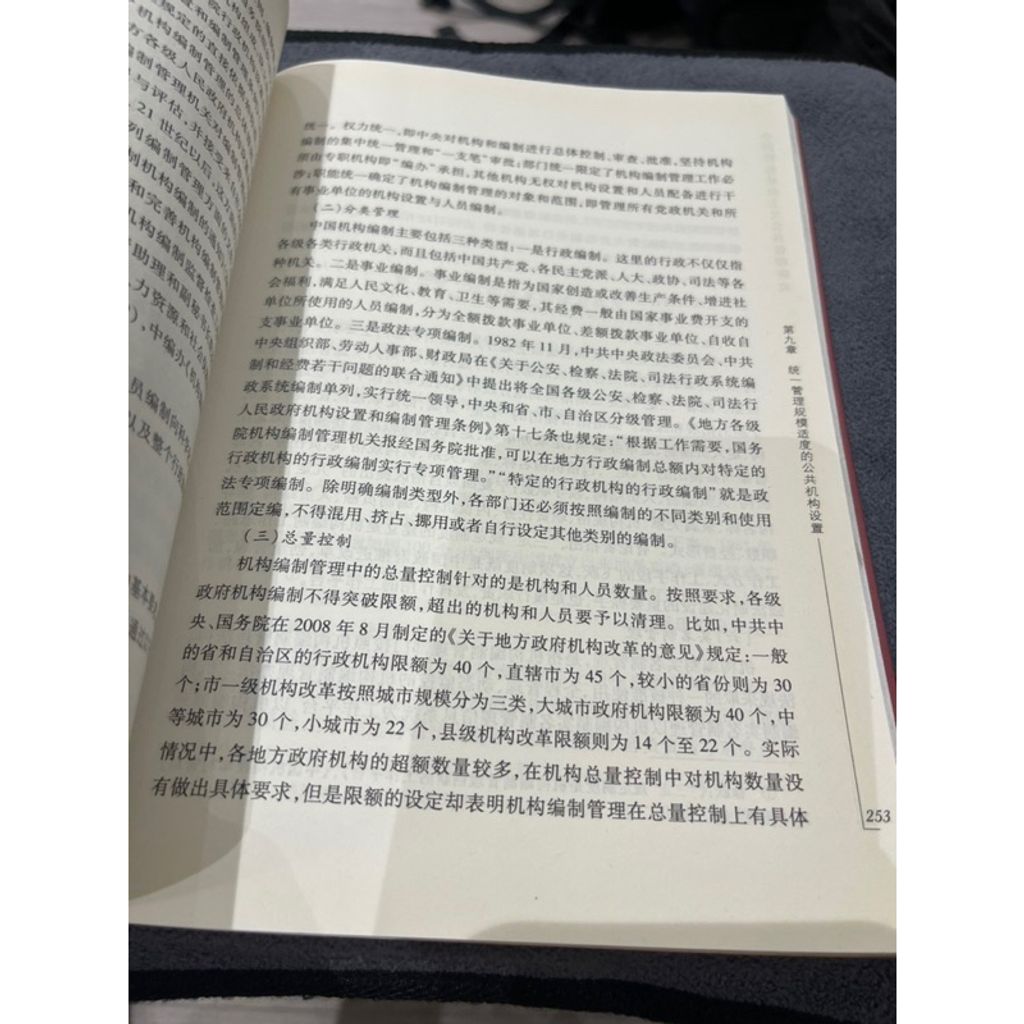 院行政机
置和编制管理
规定的直接依据
机构编制管理的总体
方各级人民政府机构设
编制管理机关对编制
与评估,并接受来
21世纪以后,这方面
列编制管理方面的
制机构编制的通
和完善机构编制
机构编制监督检查
助理和副秘书长
力资源和社会
),中编办《机构
员编制向和
以及整个行政
基本是
通过
统一。权力统一,即中央对机构和编制进行总体控制、审查、批准,坚持机构
编制的集中统一管理和“一支笔”审批;部门统一限定了机构编制管理工作必
须由专职机构即“编办”承担,其他机构无权对机构设置和人员配备进行干
涉;职能统一确定了机构编制管理的对象和范围,即管理所有党政机关和所
有事业单位的机构设置与人员编制。
(二)分类管理
中国机构编制主要包括三种类型:一是行政编制。这里的行政不仅仅指
各级各类行政机关,而且包括中国共产党、各民主党派、人大、政协、司法等各
种机关。二是事业编制。事业编制是指为国家创造或改善生产条件、增进社
会福利,满足人民文化、教育、卫生等需要,其经费一般由国家事业费开支的
单位所使用的人员编制,分为全额拨款事业单位、差额拨款事业单位、自收自
支事业单位。三是政法专项编制。1982年11月,中共中央政法委员会、中共
中央组织部、劳动人事部、财政局在《关于公安、检察、法院、司法行政系统编
制和经费若干问题的联合通知》中提出将全国各级公安、检察、法院、司法行
政系统编制单列,实行统一领导,中央和省、市、自治区分级管理。《地方各级
人民政府机构设置和编制管理条例》第十七条也规定:“根据工作需要,国务
院机构编制管理机关报经国务院批准,可以在地方行政编制总额内对特定的
行政机构的行政编制实行专项管理。”“特定的行政机构的行政编制”就是政
法专项编制。除明确编制类型外,各部门还必须按照编制的不同类别和使用
范围定编,不得混用、挤占、挪用或者自行设定其他类别的编制。
(三)总量控制
机构编制管理中的总量控制针对的是机构和人员数量。按照要求,各级
政府机构编制不得突破限额,超出的机构和人员要予以清理。比如,中共中
央、国务院在2008年8月制定的《关于地方政府机构改革的意见》规定:一般
的省和自治区的行政机构限额为40个,直辖市为45个,较小的省份则为30
个;市一级机构改革按照城市规模分为三类,大城市政府机构限额为40个,中
等城市为30个,小城市为22个,县级机构改革限额则为14个至22个。实际
情况中,各地方政府机构的超额数量较多,在机构总量控制中对机构数量没
有做出具体要求,但是限额的设定却表明机构编制管理在总量控制上有具体
第九章 统一管理规模适度的公共机构设置
253